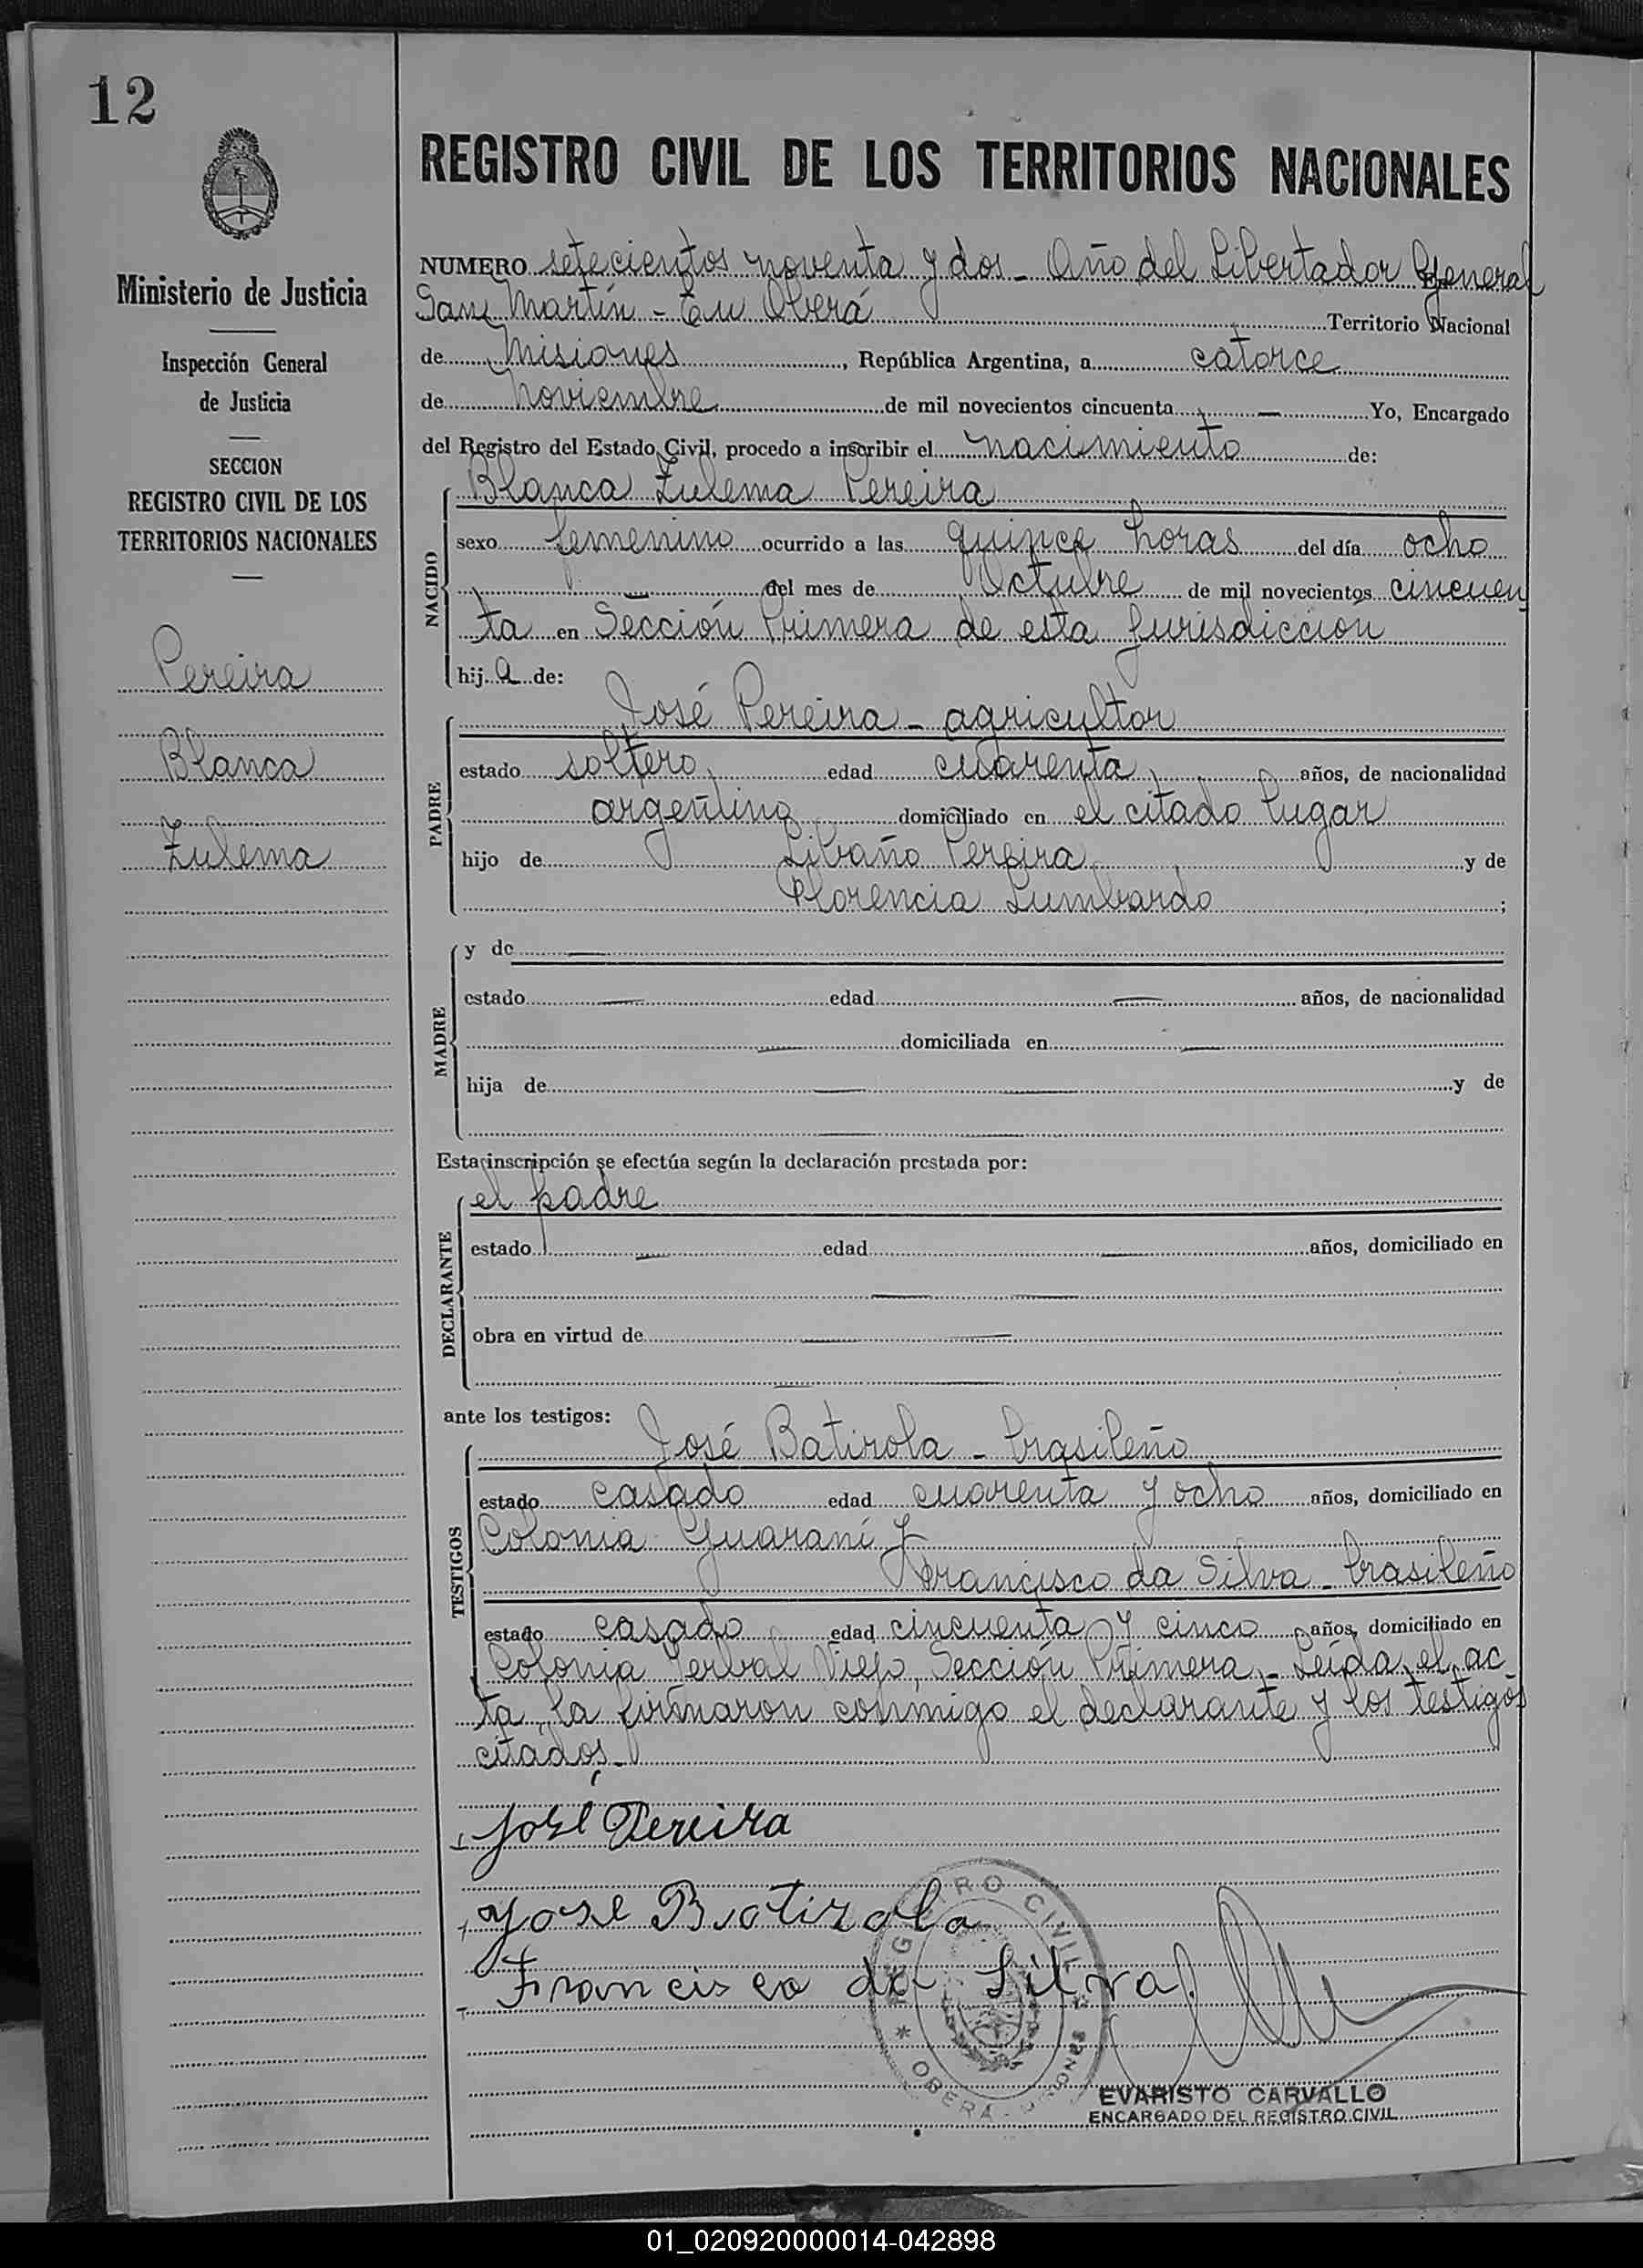 12
Ministerio de Justicia
Inspección General
de Justicia
SECCION
REGISTRO CIVIL DE LOS
TERRITORIOS NACIONALES
Pereira
Blanca
Zulema
REGISTRO CIVIL DE LOS TERRITORIOS NACIONALES
NUMERO setecientos noventa y dos - Año del Libertador General
San Martín - En Oberá Territorio Nacional
de Misiones, República Argentina, a catorce
de Noviembre de mil novecientos cincuenta — Yo, Encargado
del Registro del Estado Civil, procedo a inscribir el nacimiento de:
NACIDO
Blanca Zulema Pereira
sexo femenino ocurrido a las quince horas del día ocho
— del mes de Octubre de mil novecientos cincuen
ta en Sección Primera de esta Jurisdicción
hij a de:
PADRE
José Pereira - agricultor
estado soltero edad cuarenta años, de nacionalidad
argentino domiciliado en el citado lugar
hijo de Libaño Pereira y de
Florencia Lumbardo ;
MADRE
y de —
estado — edad — años, de nacionalidad
— domiciliada en —
hija de — — y de
—
Esta inscripción se efectúa según la declaración prestada por:
DECLARANTE
el padre
estado — edad — años, domiciliado en
— —
obra en virtud de — —
— —
ante los testigos:
TESTIGOS
José Batirola - brasileño
estado casado edad cuarenta y ocho años, domiciliado en
Colonia Guaraní y
Francisco da Silva - brasileño
estado casado edad cincuenta y cinco años, domiciliado en
Colonia Yerbal Viejo, Sección Primera - Leída el ac
ta, la firmaron conmigo el declarante y los testigos
citados.-
José Pereira
Jose Batirola
Francisco da Silva
REGISTRO CIVIL
* OBERA - MISIONES *
EVARISTO CARVALLO
ENCARGADO DEL REGISTRO CIVIL
01_020920000014-042898